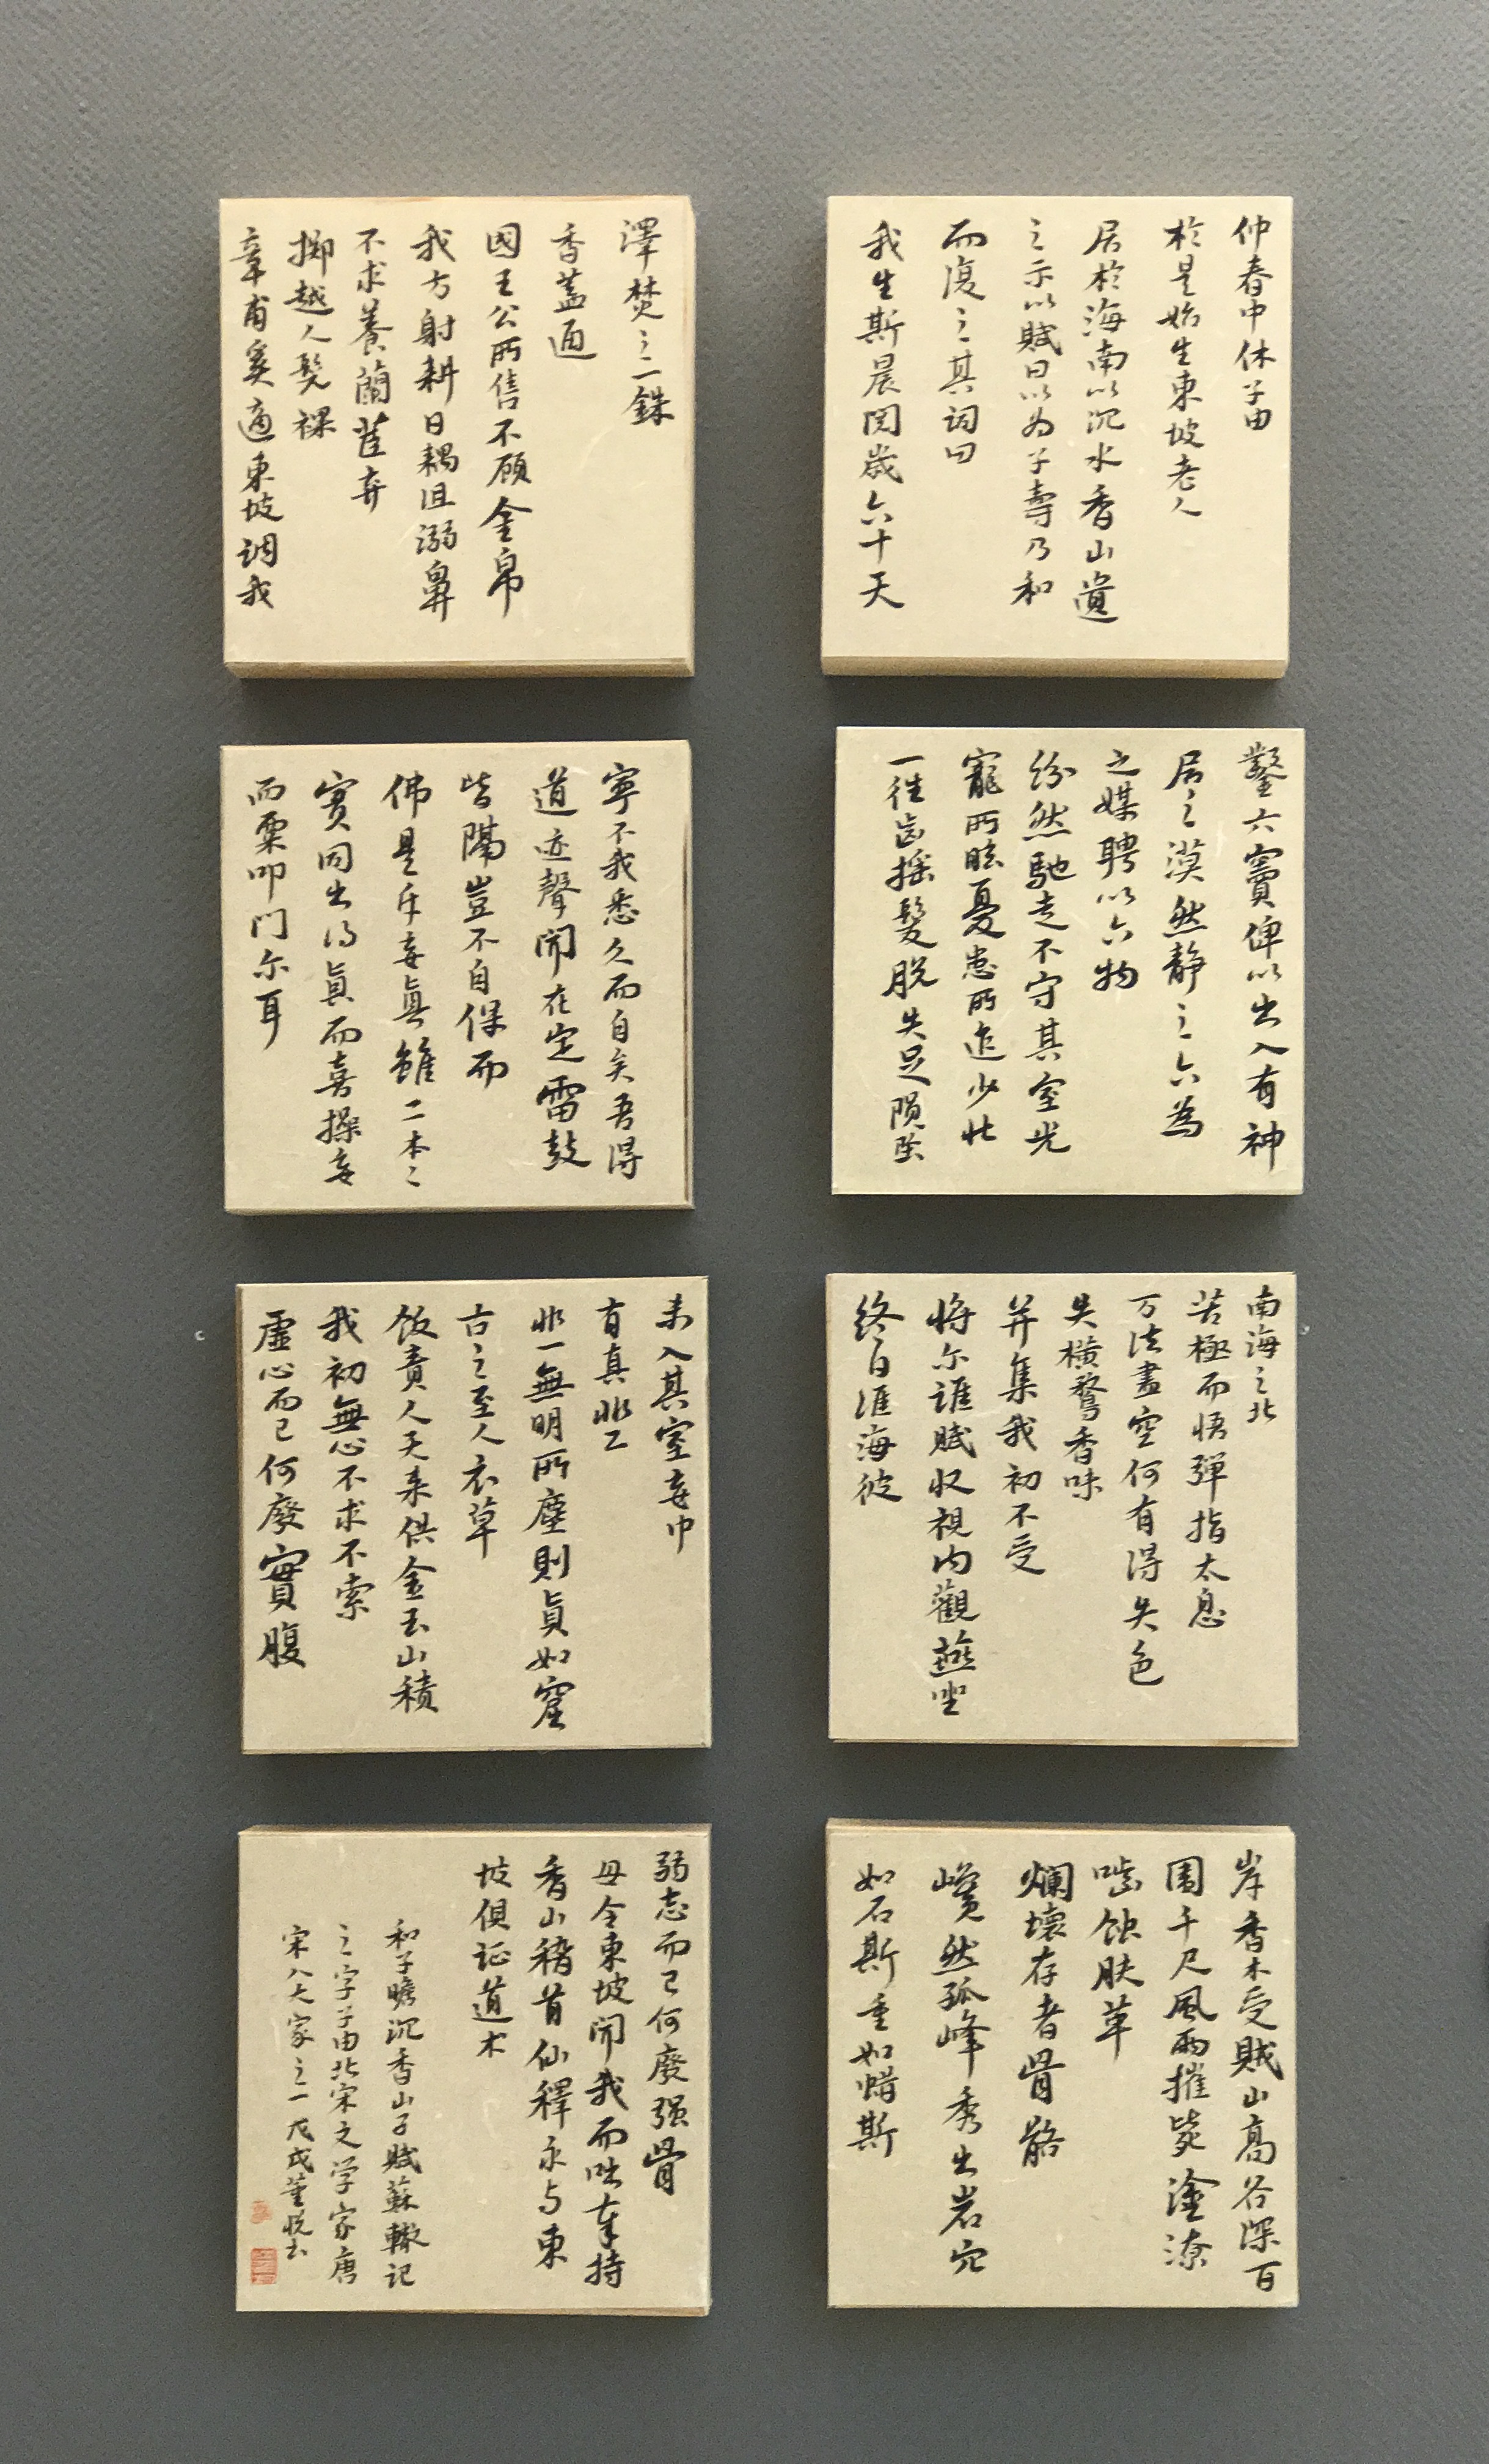 仲春中休子由
於是始生東坡老人
居於海南以沉水香山遺
之示以賦曰以为子壽乃和
而復之其词曰
我生斯晨閱歲六十天
鑿六竇俾以出入有神
居之漠然静之六為
之媒聘以六物
纷然馳走不守其室光
寵所眩憂患所迮少壮
一往齿摇髮脱失足陨坠
南海之北
苦極而悟弹指太息
万法盡空何有得失色
失橫鶩香味
并集我初不受
将尔誰賊収視内觀燕坐
终日維海彼
岸香木爰賊山高谷深百
圍千尺風雨摧斃塗潦
啮蚀肤革
爛壞存者骨骼
巉然孤峰秀出岩穴
如石斯重如蜡斯
澤焚之一銖
香蓋通
國王公所售不顾金帛
我方躬耕日耦沮溺鼻
不求養蘭茝弃
擲越人髡裸
章甫奚適東坡調我
寧不我悉久而自矣吾得
道迹聲聞在定雷鼓
皆隔豈不自保而
佛是斥妄真雖二本之
实同出得真而喜操妄
而栗叩门尔耳
未入其室妄中
有真非二
非一無明所塵則真如窟
古之至人衣草
饭责人天来供金玉山積
我初無心不求不索
虚心而已何廢實腹
弱志而已何廢强骨
毋令東坡聞我而咄奉持
香山稽首仙釋永与東
坡俱证道术
和子瞻沉香山子賦蘇轍记
之字子由北宋文学家唐
宋八大家之一戊戌董悦书